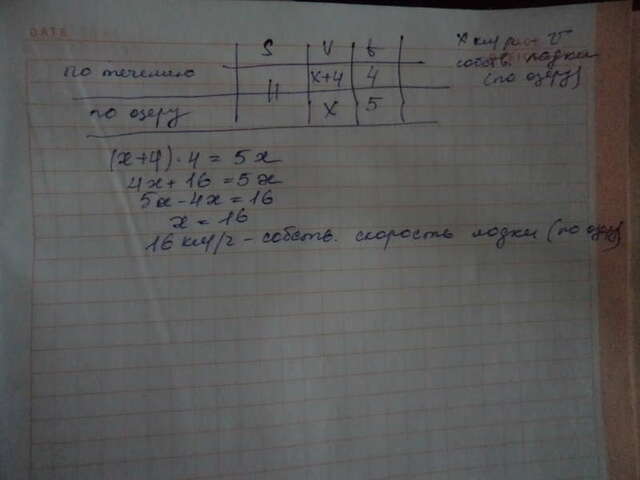 DATE
S V t
по течению x+4 4
по озеру x 5
x км/ - v
собств. лодки
(по озеру)
(x+4)·4 = 5x
4x+16 = 5x
5x-4x = 16
x = 16
16 км/г - собств. скорость лодки (по озеру)